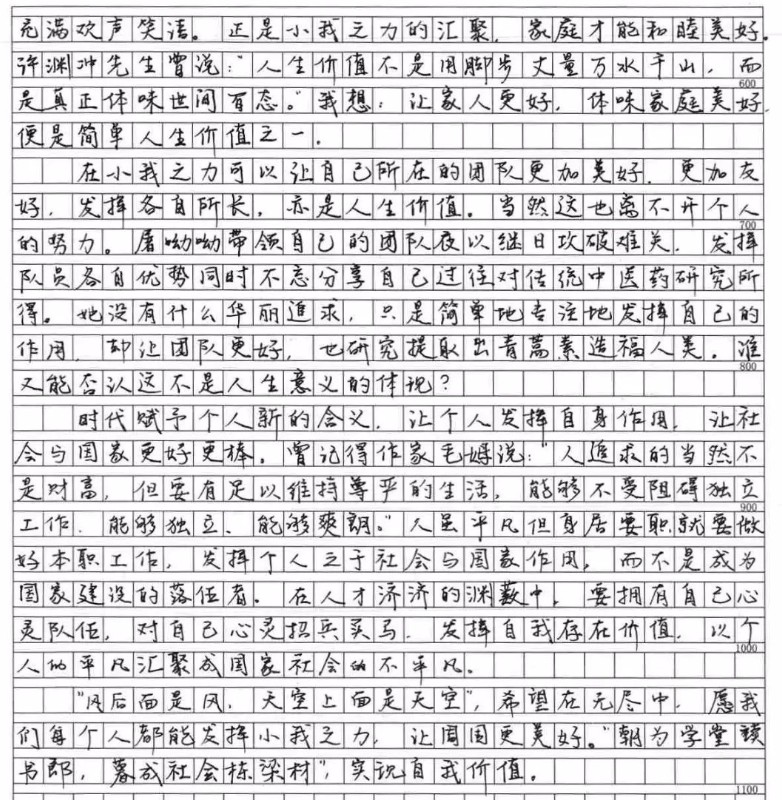 充满欢声笑语。正是小我之力的汇聚，家庭才能和睦美好。
许渊冲先生曾说："人生价值不是用脚步丈量万水千山，而
600
是真正体味世间百态。"我想：让家人更好，体味家庭美好，
便是简单人生价值之一.
在小我之力可以让自己所在的团队更加美好，更加友
好，发挥各自所长，亦是人生价值。当然这也离不开个人
700
的努力。屠呦呦带领自己的团队夜以继日攻破难关，发挥
队员各自优势同时不忘分享自己过往对传统中医药研究所
得。她没有什么华丽追求，只是简单地专注地发挥自己的
作用，却让团队更好，也研究提取出青蒿素造福人类。谁
800
又能否认这不是人生意义的体现？
时代赋予个人新的含义，让个人发挥自身作用，让社
会与国家更好更棒。曾记得作家毛姆说："人追求的当然不
是财富，但要有足以维持尊严的生活，能够不受阻碍独立
900
工作，能够独立、能够爽朗。"人虽平凡但身居要职就要做
好本职工作，发挥个人之于社会与国家作用，而不是成为
国家建设的落伍者。在人才济济的渊薮中，要拥有自己心
灵队伍，对自己心灵招兵买马，发挥自我存在价值，以个
1000
人的平凡汇聚成国家社会的不平凡。
"风后面是风，天空上面是天空"，希望在无尽中，愿我
们每个人都能发挥小我之力，让国国更美好。"朝为学堂读
书郎，暮成社会栋梁材"，实现自我价值。
1100